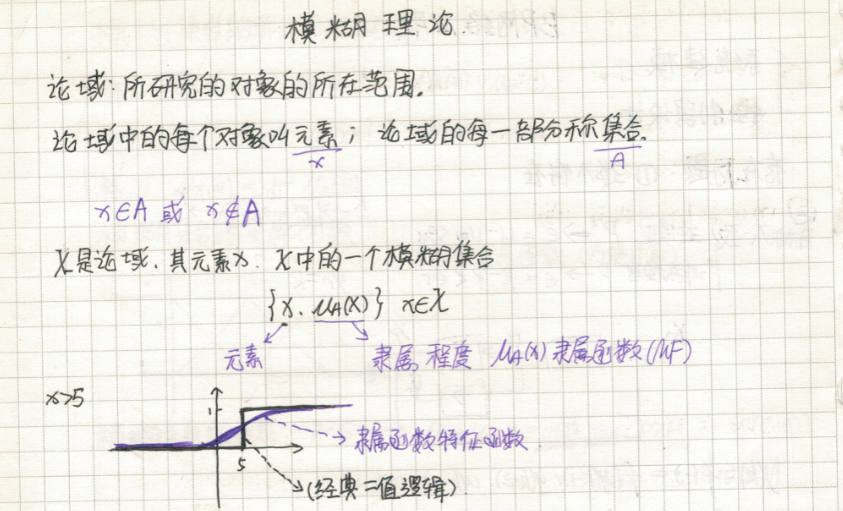 模糊理论.
论域: 所研究的对象的所在范围.
论域中的每个对象叫元素; 论域的每一部分称集合.
x A
x∈A 或 x∉A
X是论域、其元素x. X中的一个模糊集合
{x、μA(x)} x∈X
元素 隶属 程度 μA(x) 隶属函数(MF)
x>5
1
隶属函数特征函数
5
(经典二值逻辑).